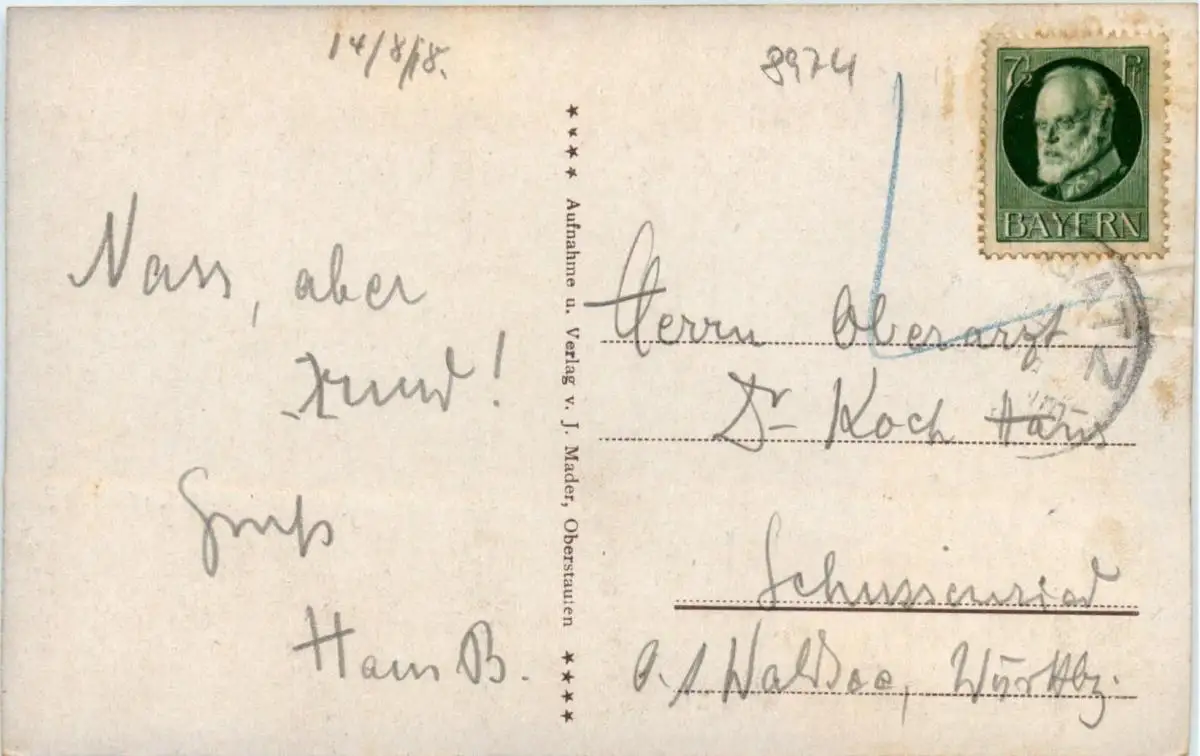 14/8/18.
Nass, aber
Gruß
Hans B.
Aufnahme u. Verlag v. J. Mader, Oberstaufen
8974
7½ Pf
BAYERN
ATZ
Herrn Oberarzt
Dr Koch Hans
Schussenried
O. A. Waldsee, Württbg.